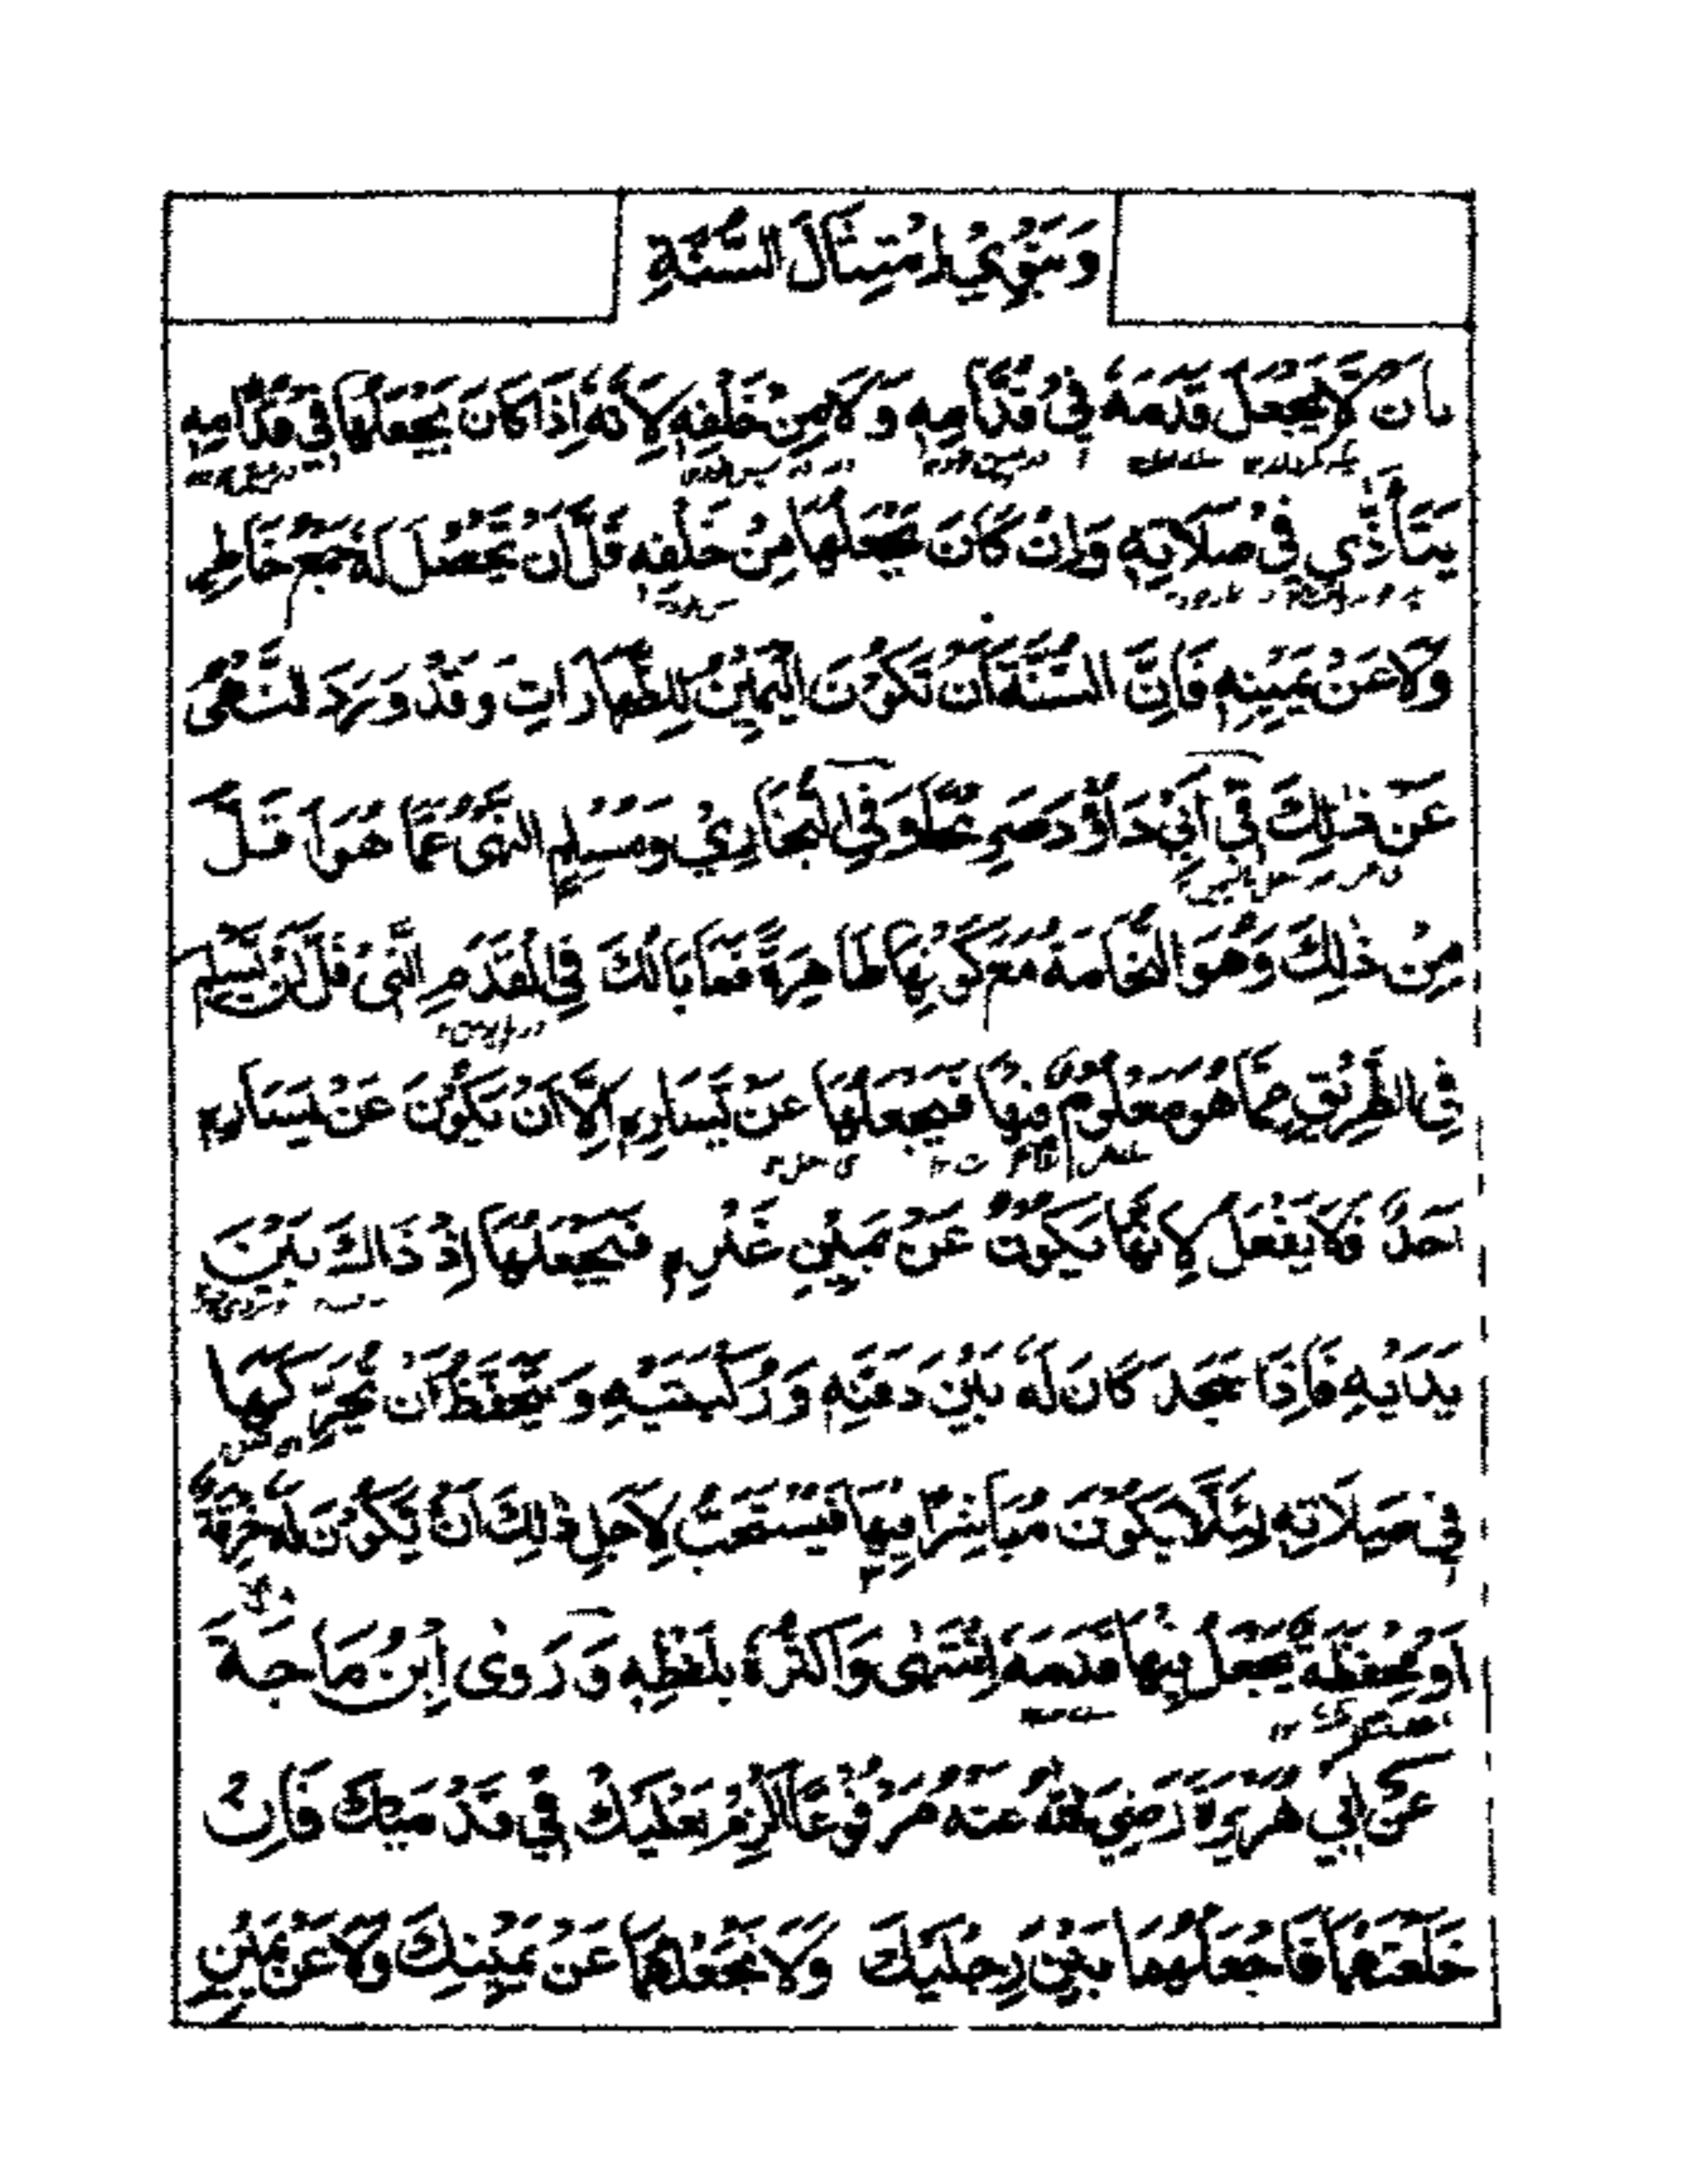 وَيَنْوِيْ اِمْتِثَالَ السُّنَّةِ
بأن لَا يَجْعَلَ قَدَمَهُ فِيْ قُدَّامِهٖ وَلَا مِنْ خَلْفِهٖ لِاَنَّهُ اِذَا كَانَ يَجْعَلُهَا فِيْ قُدَّامِهٖ
يَتَأَذّٰي فِيْ صَلَاتِهٖ وَاِنْ كَانَ يَجْعَلُهَا مِنْ خَلْفِهٖ قَلَّ أَنْ يَّحْصُلَ لَهُ جَمْعُ خَاطِرِهٖ
وَلَا عَنْ يَمِيْنِهٖ فَاِنَّ السُّنَّةَ أَنْ تَكُوْنَ الْيَمِيْنُ لِلطَّهَارَاتِ وَقَدْ وَرَدَ النَّهْيُ
عَنْ ذٰلِكَ فِيْ اَبِيْ دَاوٗدَ صَرِيْحًا وَفِي الْبُخَارِيْ وَمُسْلِمٍ النَّهْيُ عَمَّا هُوَ اَقَلُّ
مِنْ ذٰلِكَ وَهُوَ النُّخَامَةُ مَعَ كَوْنِهَا طَاهِرَةً فَمَا بَالُكَ فِي الْقَدَمِ الَّتِيْ قَلَّ اَنْ تَسْلِمَ
فِي الطَّرِيْقِ مِمَّا هُوَ مَعْلُوْمٌ فِيْهَا فَيَجْعَلُهَا عَنْ يَّسَارِهٖ اِلَّا اَنْ يَكُوْنَ عَنْ يَسَارِهٖ
اَحَدٌ فَلَا يَفْعَلُ لِاَنَّهَا تَكُوْنُ عَنْ يَمِيْنِ غَيْرِهٖ فَيَجْعَلُهَا اِذْ ذَاكَ بَيْنَ
يَدَيْهِ فَاِذَا سَجَدَ كَانَ لَهُ بَيْنَ ذَقْنِهٖ وَرُكْبَتَيْهِ وَيَتَحَفَّظُ اَنْ يُّحَرِّكَهَا
فِيْ صَلَاتِهٖ لِئَلَّا يَكُوْنَ مُبَاشِرًا فِيْهَا فَيُسْتَحَبُّ لِاَجَلِ ذٰلِكَ اَنْ يَّكُوْنَ لَهُ خِرْقَةٌ
اَوْ مِحْفَظَةٌ يَجْعَلُ فِيْهَا قَدَمَهُ اِنْتَهٰى وَاَكْثَرُهُ بِلَفْظِهٖ وَرَوٰى اِبْنُ مَاجَةَ
عَنْ اَبِيْ هُرَيْرَةَ رَضِيَ اللهُ عَنْهُ مَرْفُوْعًا اَلْزِمْ نَعْلَيْكَ فِيْ قَدَمَيْكَ فَاِنْ
خَلَعْتَهُمَا فَاجْعَلْهُمَا بَيْنَ رِجْلَيْكَ وَلَا تَجْعَلْهُمَا عَنْ يَمِيْنِكَ وَلَا عَنْ يَّمِيْنِ